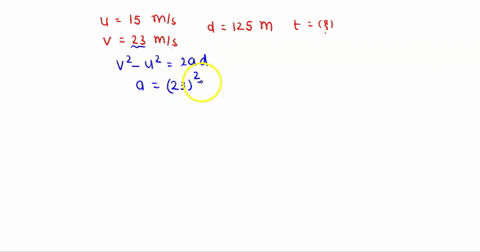 u = 15 m/s d = 125 m t = (?)
v = 23 m/s
v² - u² = 2ad
a = (23)²